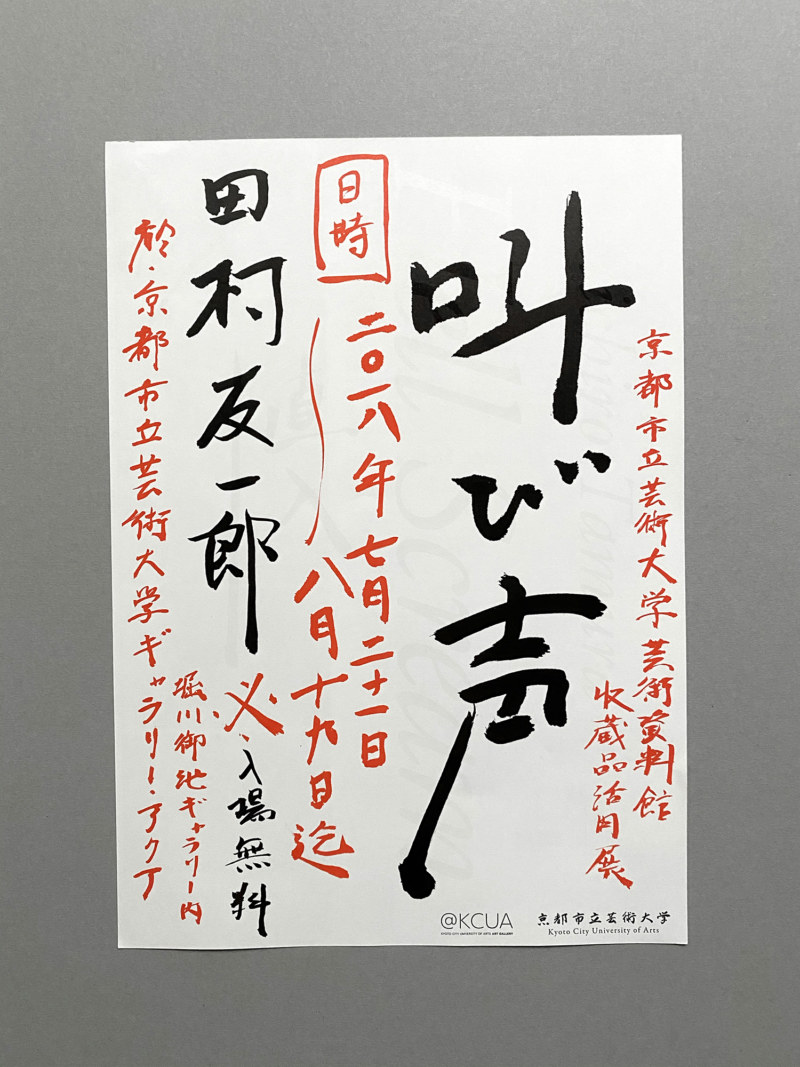 京都市立芸術大学芸術資料館
収蔵品活用展
叫び声
日時
二〇一八年七月二十一日
八月十九日迄
田村友一郎
入場無料
於・京都市立芸術大学ギャラリー・アクア
堀川御池ギャラリー内
@KCUA
KYOTO CITY UNIVERSITY OF ARTS ART GALLERY
京都市立芸術大学
Kyoto City University of Arts